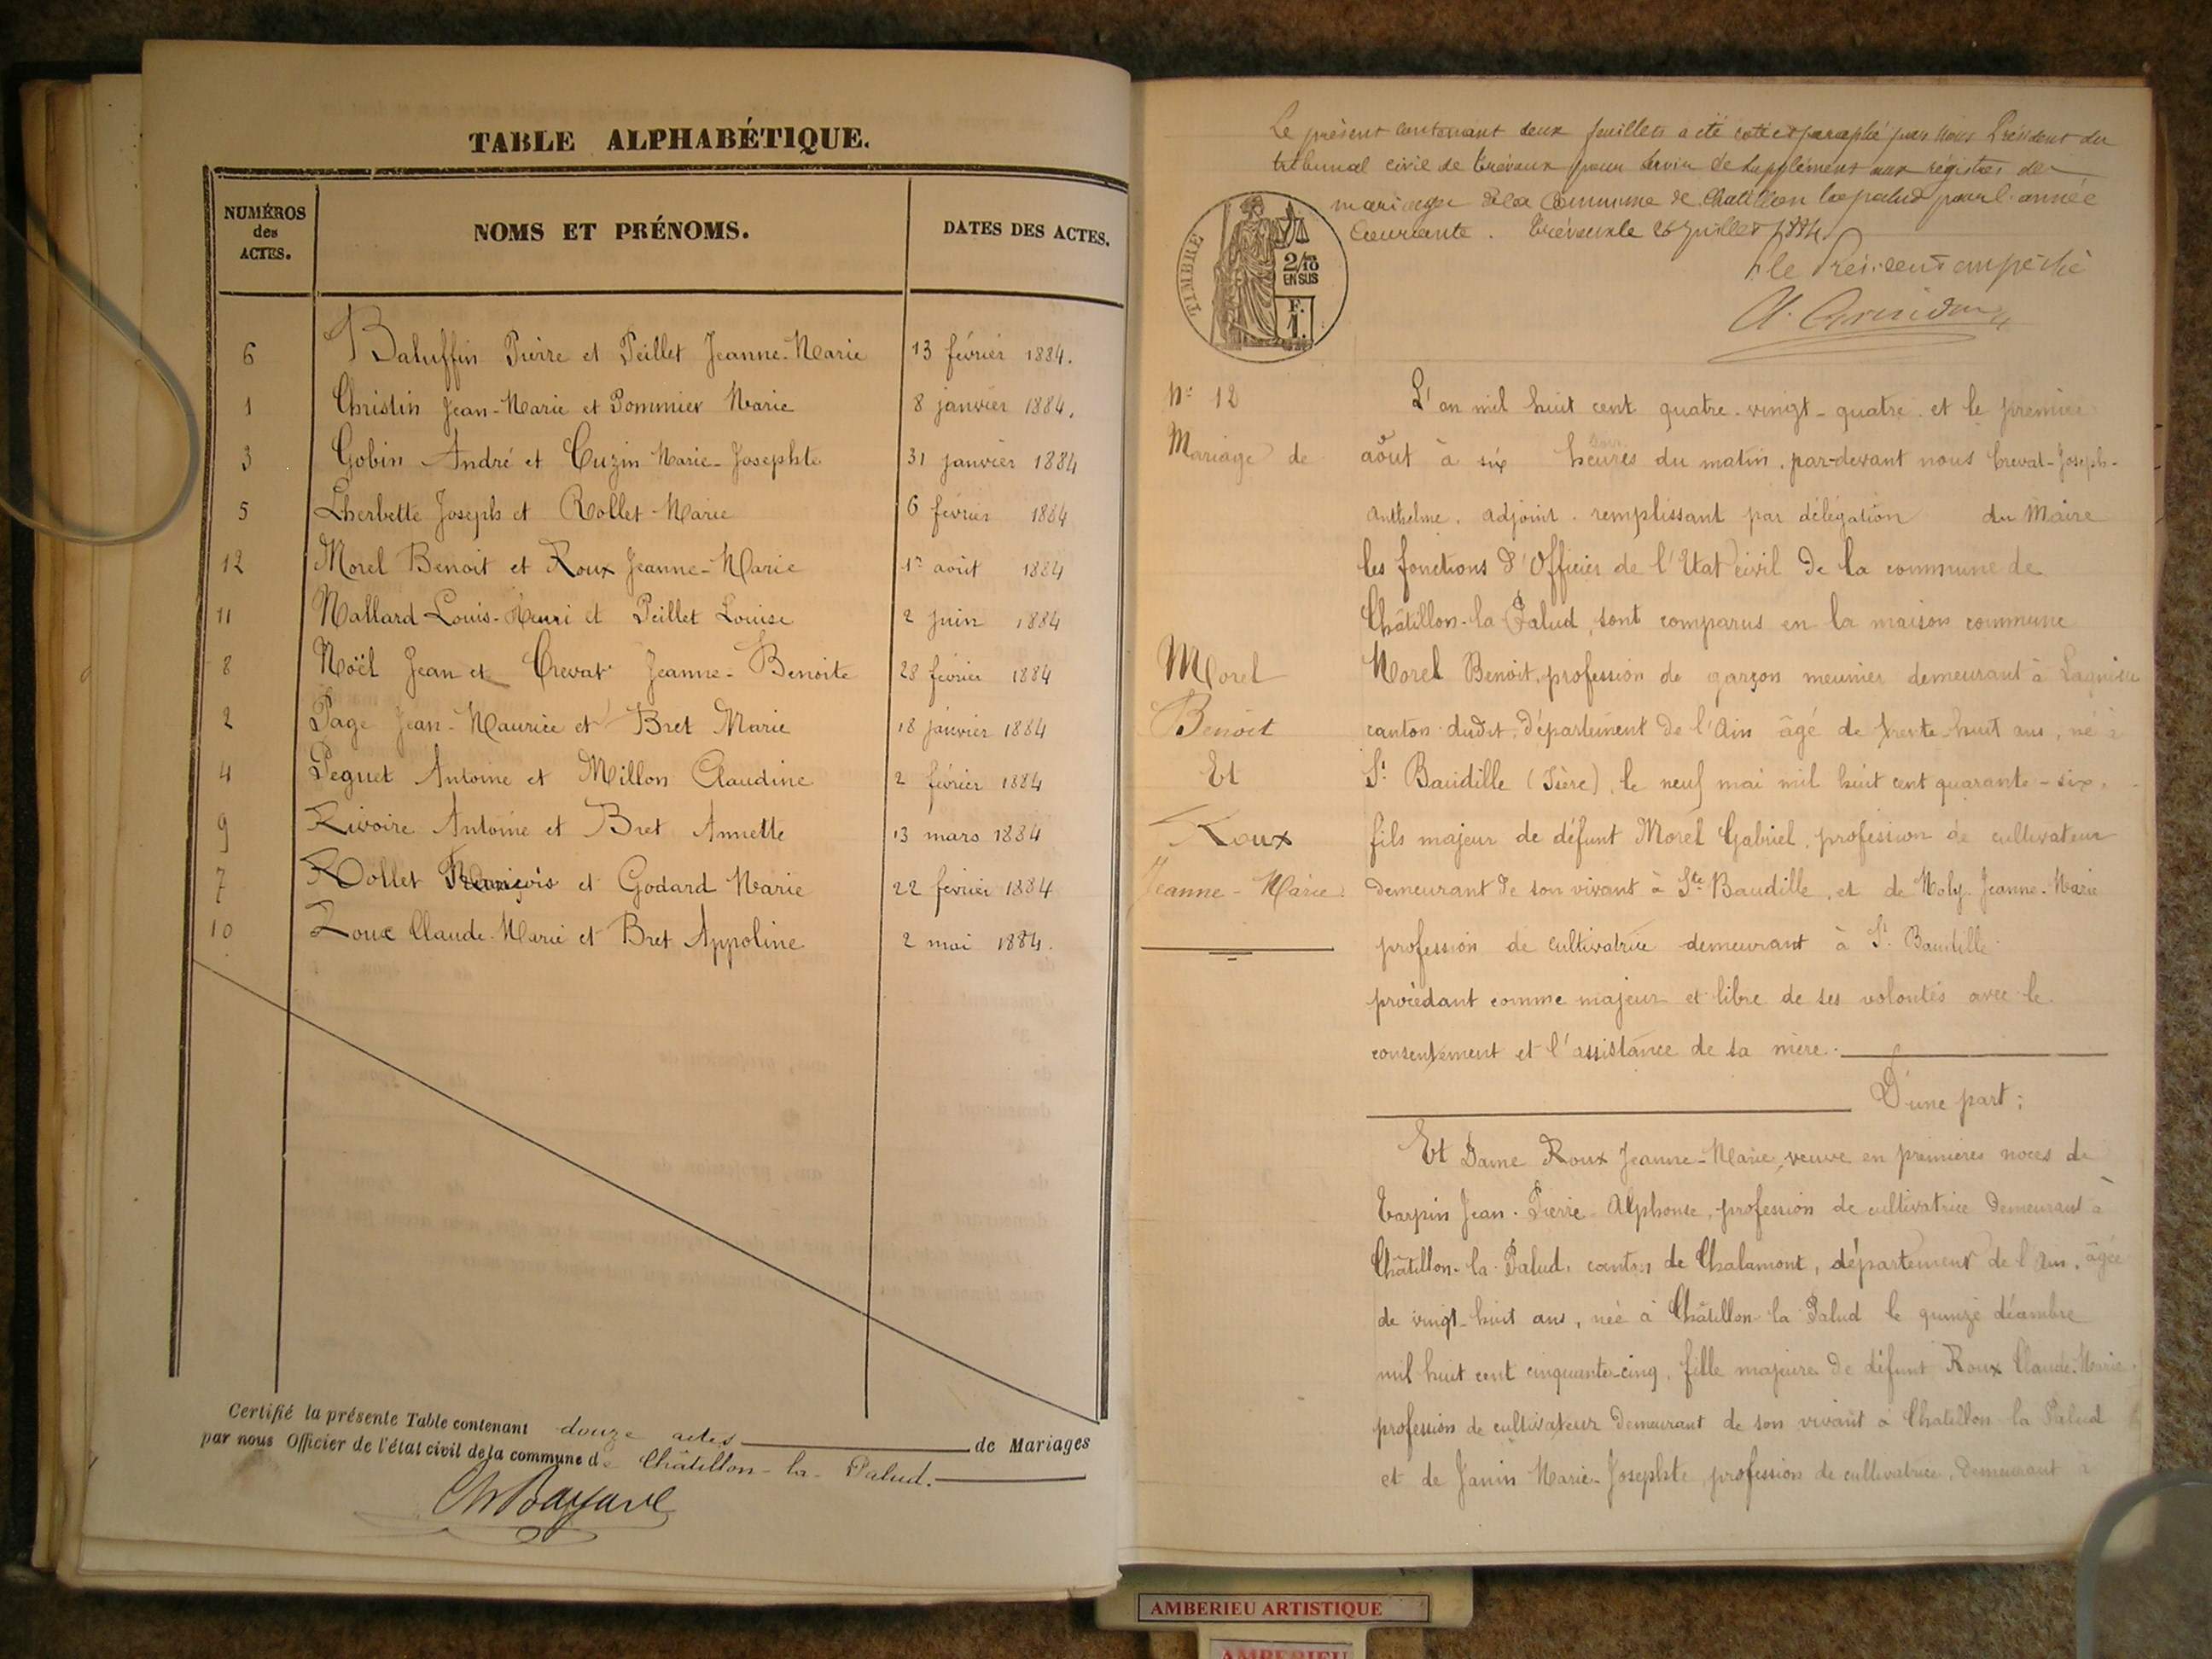 TABLE ALPHABÉTIQUE.
NUMÉROS des ACTES.
NOMS ET PRÉNOMS.
DATES DES ACTES.
6 Baluffin Pierre et Peillet Jeanne-Marie 13 février 1884.
1 Christin Jean-Marie et Pommier Marie 8 janvier 1884.
3 Gobin André et Cuzin Marie-Josephte 31 janvier 1884
5 Lherbette Joseph et Rollet Marie 6 février 1884
12 Morel Benoit et Roux Jeanne-Marie 1er août 1884
11 Mallard Louis-Henri et Peillet Louise 2 juin 1884
8 Noël Jean et Crevat Jeanne-Benoite 28 février 1884
2 Page Jean-Maurice et Bret Marie 18 janvier 1884
4 Peguet Antoine et Millon Claudine 2 février 1884
9 Rivoire Antoine et Bret Annette 13 mars 1884
7 Rollet François et Godard Marie 22 février 1884
10 Roux Claude-Marie et Bret Appoline 2 mai 1884.
Certifié la présente Table contenant douze actes de Mariages
par nous Officier de l'état civil de la commune de Châtillon-la-Palud.
Le présent contenant deux feuillets a été coté et paraphé par nous Président du
tribunal civil de Trévoux pour servir de supplément aux registres de
mariage de la Commune de Chatillon la palud pour l'année
Courante. Trévoux le 26 Juillet 1884
le Président empêché
TIMBRE
2/10
EN SUS
F.
1.
N° 12
Mariage de
Morel
Benoit
Et
Roux
Jeanne-Marie.
L'an mil huit cent quatre-vingt-quatre et le premier
août à six heures du matin, par-devant nous Crevat-Joseph-
Anthelme, adjoint remplissant par délégation du Maire
les fonctions d'Officier de l'Etat civil de la commune de
Châtillon-la-Palud, sont comparus en la maison commune
Morel Benoit, profession de garçon meunier demeurant à Lagnieu
canton dudit, département de l'Ain âgé de trente-huit ans, né à
St Baudille (Isère), le neuf mai mil huit cent quarante-six,
fils majeur de défunt Morel Gabriel, profession de cultivateur
demeurant de son vivant à Ste Baudille, et de Moly Jeanne-Marie
profession de cultivatrice demeurant à St Baudille
procédant comme majeur et libre de ses volontés avec le
consentement et l'assistance de sa mère.
D'une part;
Et Dame Roux Jeanne-Marie, veuve en premières noces de
Tarpin Jean-Pierre-Alphonse, profession de cultivatrice demeurant à
Châtillon-la-Palud, canton de Chalamont, département de l'Ain, âgée
de vingt-huit ans, née à Châtillon-la-Palud le quinze décembre
mil huit cent cinquante-cinq, fille majeure de défunt Roux Claude-Marie
profession de cultivateur demeurant de son vivant à Chatillon-la-Palud
et de Janin Marie-Josephte, profession de cultivatrice, demeurant à
AMBERIEU ARTISTIQUE
AMBERIEU